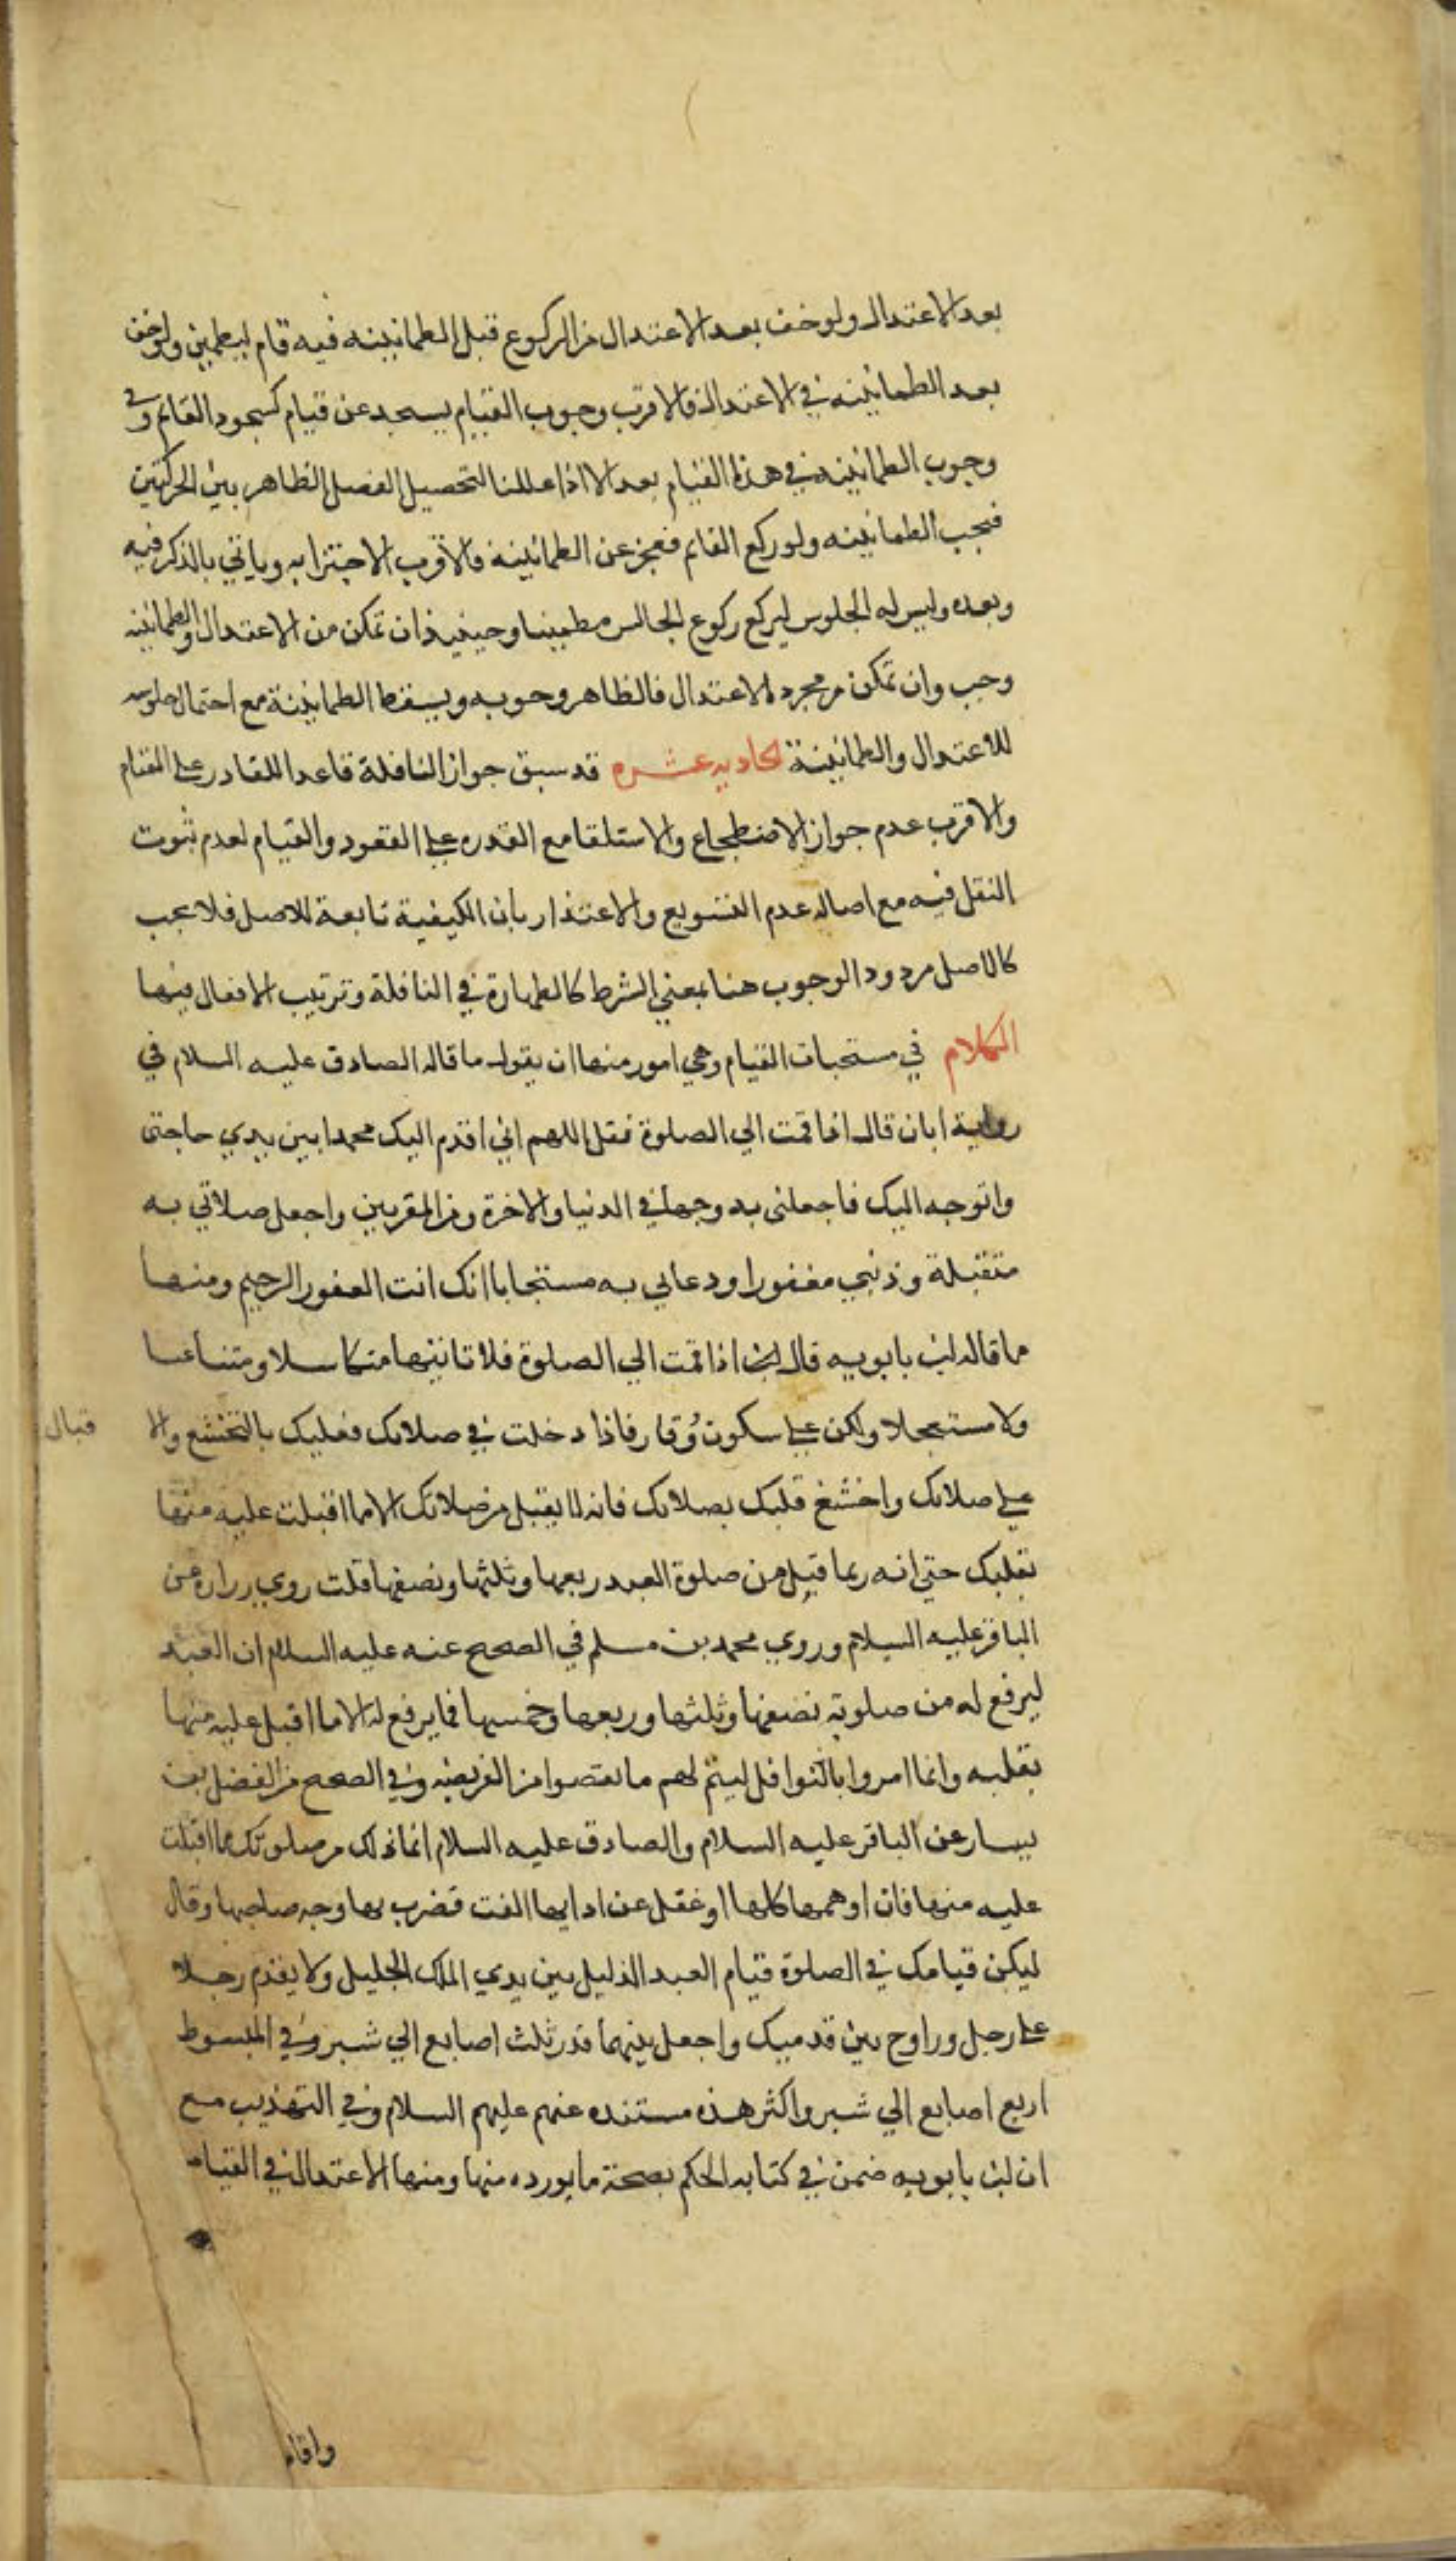 بعد الاعتدال ولو خف بعد الاعتدال من الركوع قبل الطمانينه فيه قام ليطمين ولو خف
بعد الطمانينه في الاعتدال فالاقرب وجوب القيام ليسجد عن قيام كسجود القائم وفي
وجوب الطمانينه في هذا القيام بعد الا اذا عللنا التحصيل الفصل الظاهر بين الحركتين
فيجب الطمانينه ولو ركع القايم فعجز عن الطمانينة فالاقرب الاجتزا به وياتي بالذكر فيه
وبعده وليس له الجلوس ليركع ركوع الجالس مطمينا وحينيذ ان تمكن من الاعتدال والطمانينه
وجب وان تمكن من مجرد الاعتدال فالظاهر وجوبه ويسقط الطمانينة مع احتمال جلوسه
للاعتدال والطمانينة الحاديه عشره قد سبق جواز النافلة قاعدا للقادر على القيام
والاقرب عدم جواز الاضطجاع والاستلقا مع القدره على القعود والقيام لعدم ثبوت
النقل فيه مع اصاله عدم التسويع والاعتذار بان الكيفية تابعة للاصل فلا يجب
كالاصل مردود الوجوب هنا بمعني الشرط كالطهارة في النافلة وترتيب الافعال فيها
الكلام في مستحبات القيام وهي امور منها ان يقول ما قاله الصادق عليه السلام في
رواية ابان قال اذا قمت الي الصلوة فقل اللهم اني اقدم اليك محمدا بين يدي حاجتي
واتوجه اليك فاجعلني به وجها في الدنيا والاخرة ومن المقربين واجعل صلاتي به
متقبلة وذنبي مغفورا ودعاي به مستجابا انك انت الغفور الرحيم ومنها
ما قاله ابن بابويه قال اذا قمت الي الصلوة فلا تاتيها متكاسلا ومتناعسا
ولا مستعجلا ولكن على سكون وقار فاذا دخلت في صلاتك فعليك بالتخشع والا
قبال
على صلاتك واخشع قلبك بصلاتك فانه لا يقبل من صلاتك الا ما اقبلت عليه منها
بقلبك حتي انه ربما قبل من صلوة العبد ربعها وثلثها ونصفها قلت روي زراره عن
الباقر عليه السلام وروي محمد بن مسلم في الصحيح عنه عليه السلام ان العبد
ليرفع له من صلوته نصفها وثلثها وربعها وخمسها فما يرفع له الا ما اقبل عليه منها
بقلبه وانما امروا بالنوافل ليتم لهم ما نقصوا من الفريضه وفي الصحيح من الفضل بن
يسار عن الباقر عليه السلام والصادق عليه السلام انما لك من صلوتك ما اقبلت
عليه منها فان اوهمها كلها او غفل عن ادايها الفت فضرب بها وجه صاحبها وقال
ليكن قيامك في الصلوة قيام العبد الذليل بين يدي الملك الجليل ولا يقدم رجلا
على رجل وراوح بين قدميك واجعل بينهما قدر ثلث اصابع الي شبر وفي المبسوط
اربع اصابع الي شبر واكثر هذه مسنده عنهم عليهم السلام وفي التهذيب مع
ان ابن بابويه ضمن في كتابه الحكم بصحة ما يورده منها ومنها الاعتدال في القيام
واقام